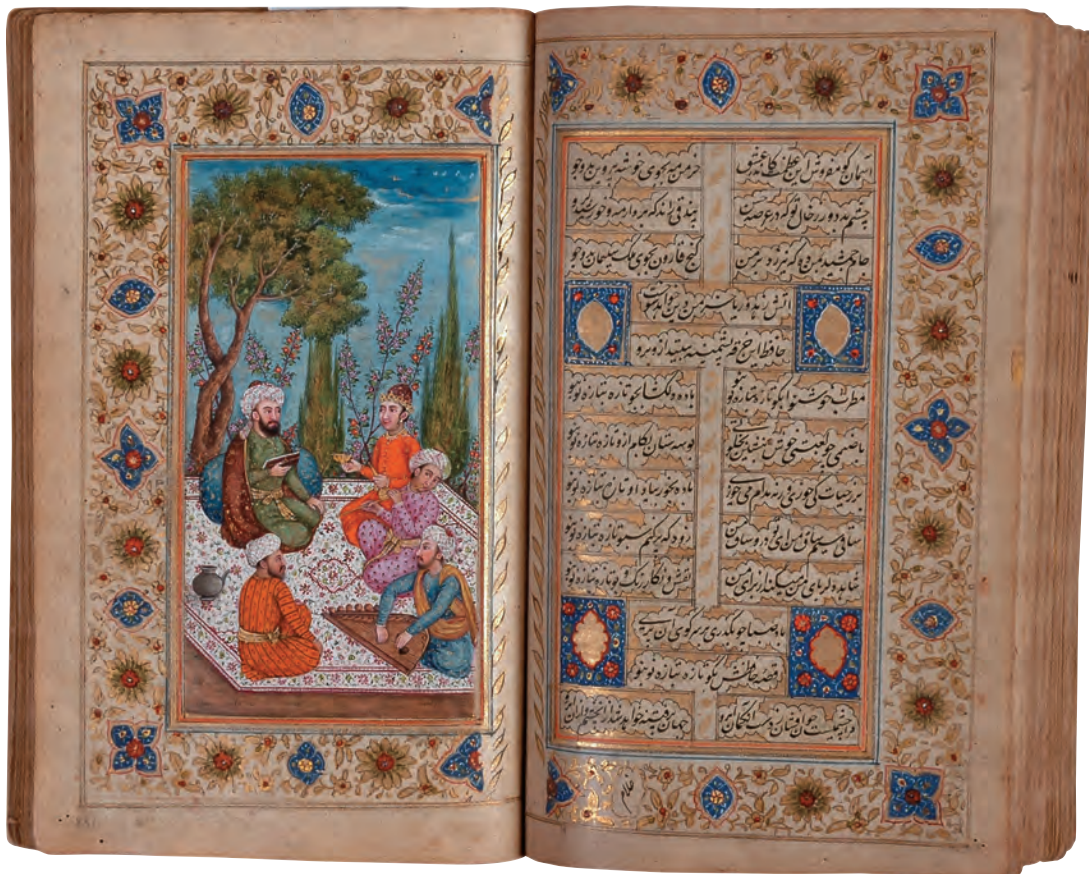 آسمان گو مفروش این عظمت کاندر عشق خرمن مه بجوی خوشه پروین بدو جو
چشم بد دور ز خال تو که در عرصه حسن بیدقی راند که برد از مه و خورشید گرو
جام جمشید بمن ده که نیرزد بر من گنج قارون بجوی ملک سلیمان بدو جو
آتش زهد و ریا خرمن دین خواهد سوخت
حافظ این خرقه پشمینه بینداز و برو
مطرب خوشنوا بگو تازه بتازه نو بنو باده دلگشا بجو تازه بتازه نو بنو
با صنمی چو لعبتی خوش بنشین بخلوتی بوسه ستان بکام ازو تازه بتازه نو بنو
بر ز حیات کی خوری گر نه مدام می خوری باده بخور بیاد او تازه بتازه نو بنو
ساقی سیم من زود که پر کنم سبو تازه بتازه نو بنو
شاهد دلربای من میکند از برای من نقش و نگار و رنگ و بو تازه بتازه نو بنو
باد صبا چو بگذری بر سر کوی آن پری
قصه حافظش بگو تازه بتازه نو بنو
مرا چشمیست خون افشان ز دست آن کمان ابرو جهان پر فتنه خواهد شد از آن چشم و از آن ابرو
غلام